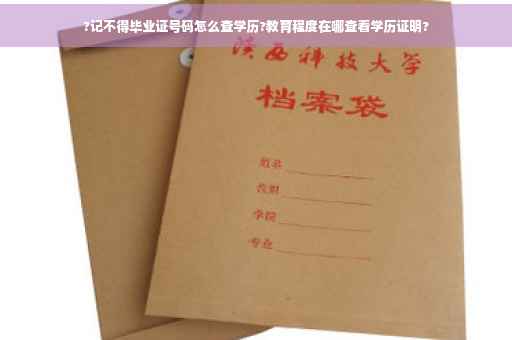 ?记不得毕业证号码怎么查学历?教育程度在哪查看学历证明?
陕西科技大学
档案袋
姓名
性别
学院
专业